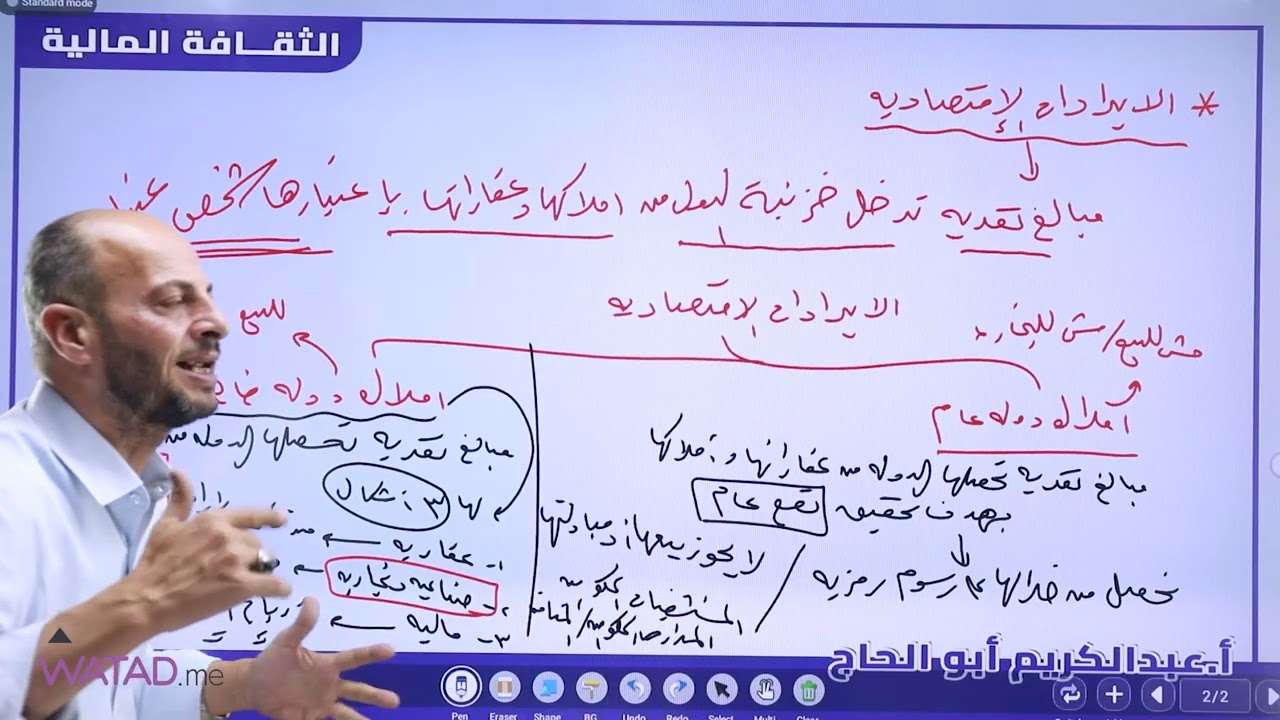 Standard mode
الثقافة المالية
* الايرادات الإقتصاديه
مبالغ نقديه تدخل خزينة الدوله من املاكها وعقاراتها بإعتبارها شخص
الايرادات الإقتصاديه
مش للبيع/مش للتجاره
للبيع
أملاك دوله عام
املاك دوله
مبالغ نقديه تحصلها الدوله من عقاراتها وأملاكها
بهدف تحقيق نفع عام
نحصل من خلالها على رسوم رمزيه
لا يجوز بيعها أو مبادلتها
المستشفيات الحكوميه
المدارس الحكوميه/
مبالغ نقديه تحصلها الدوله من
لها ٣ أشكال
١- عقاريه
٢- صناعيه وتجاريه
٣- ماليه
أ.عبدالكريم أبو الحاج
WATAD.me
Pen Eraser Shape BG Undo Redo Select Multi Clear
2/2